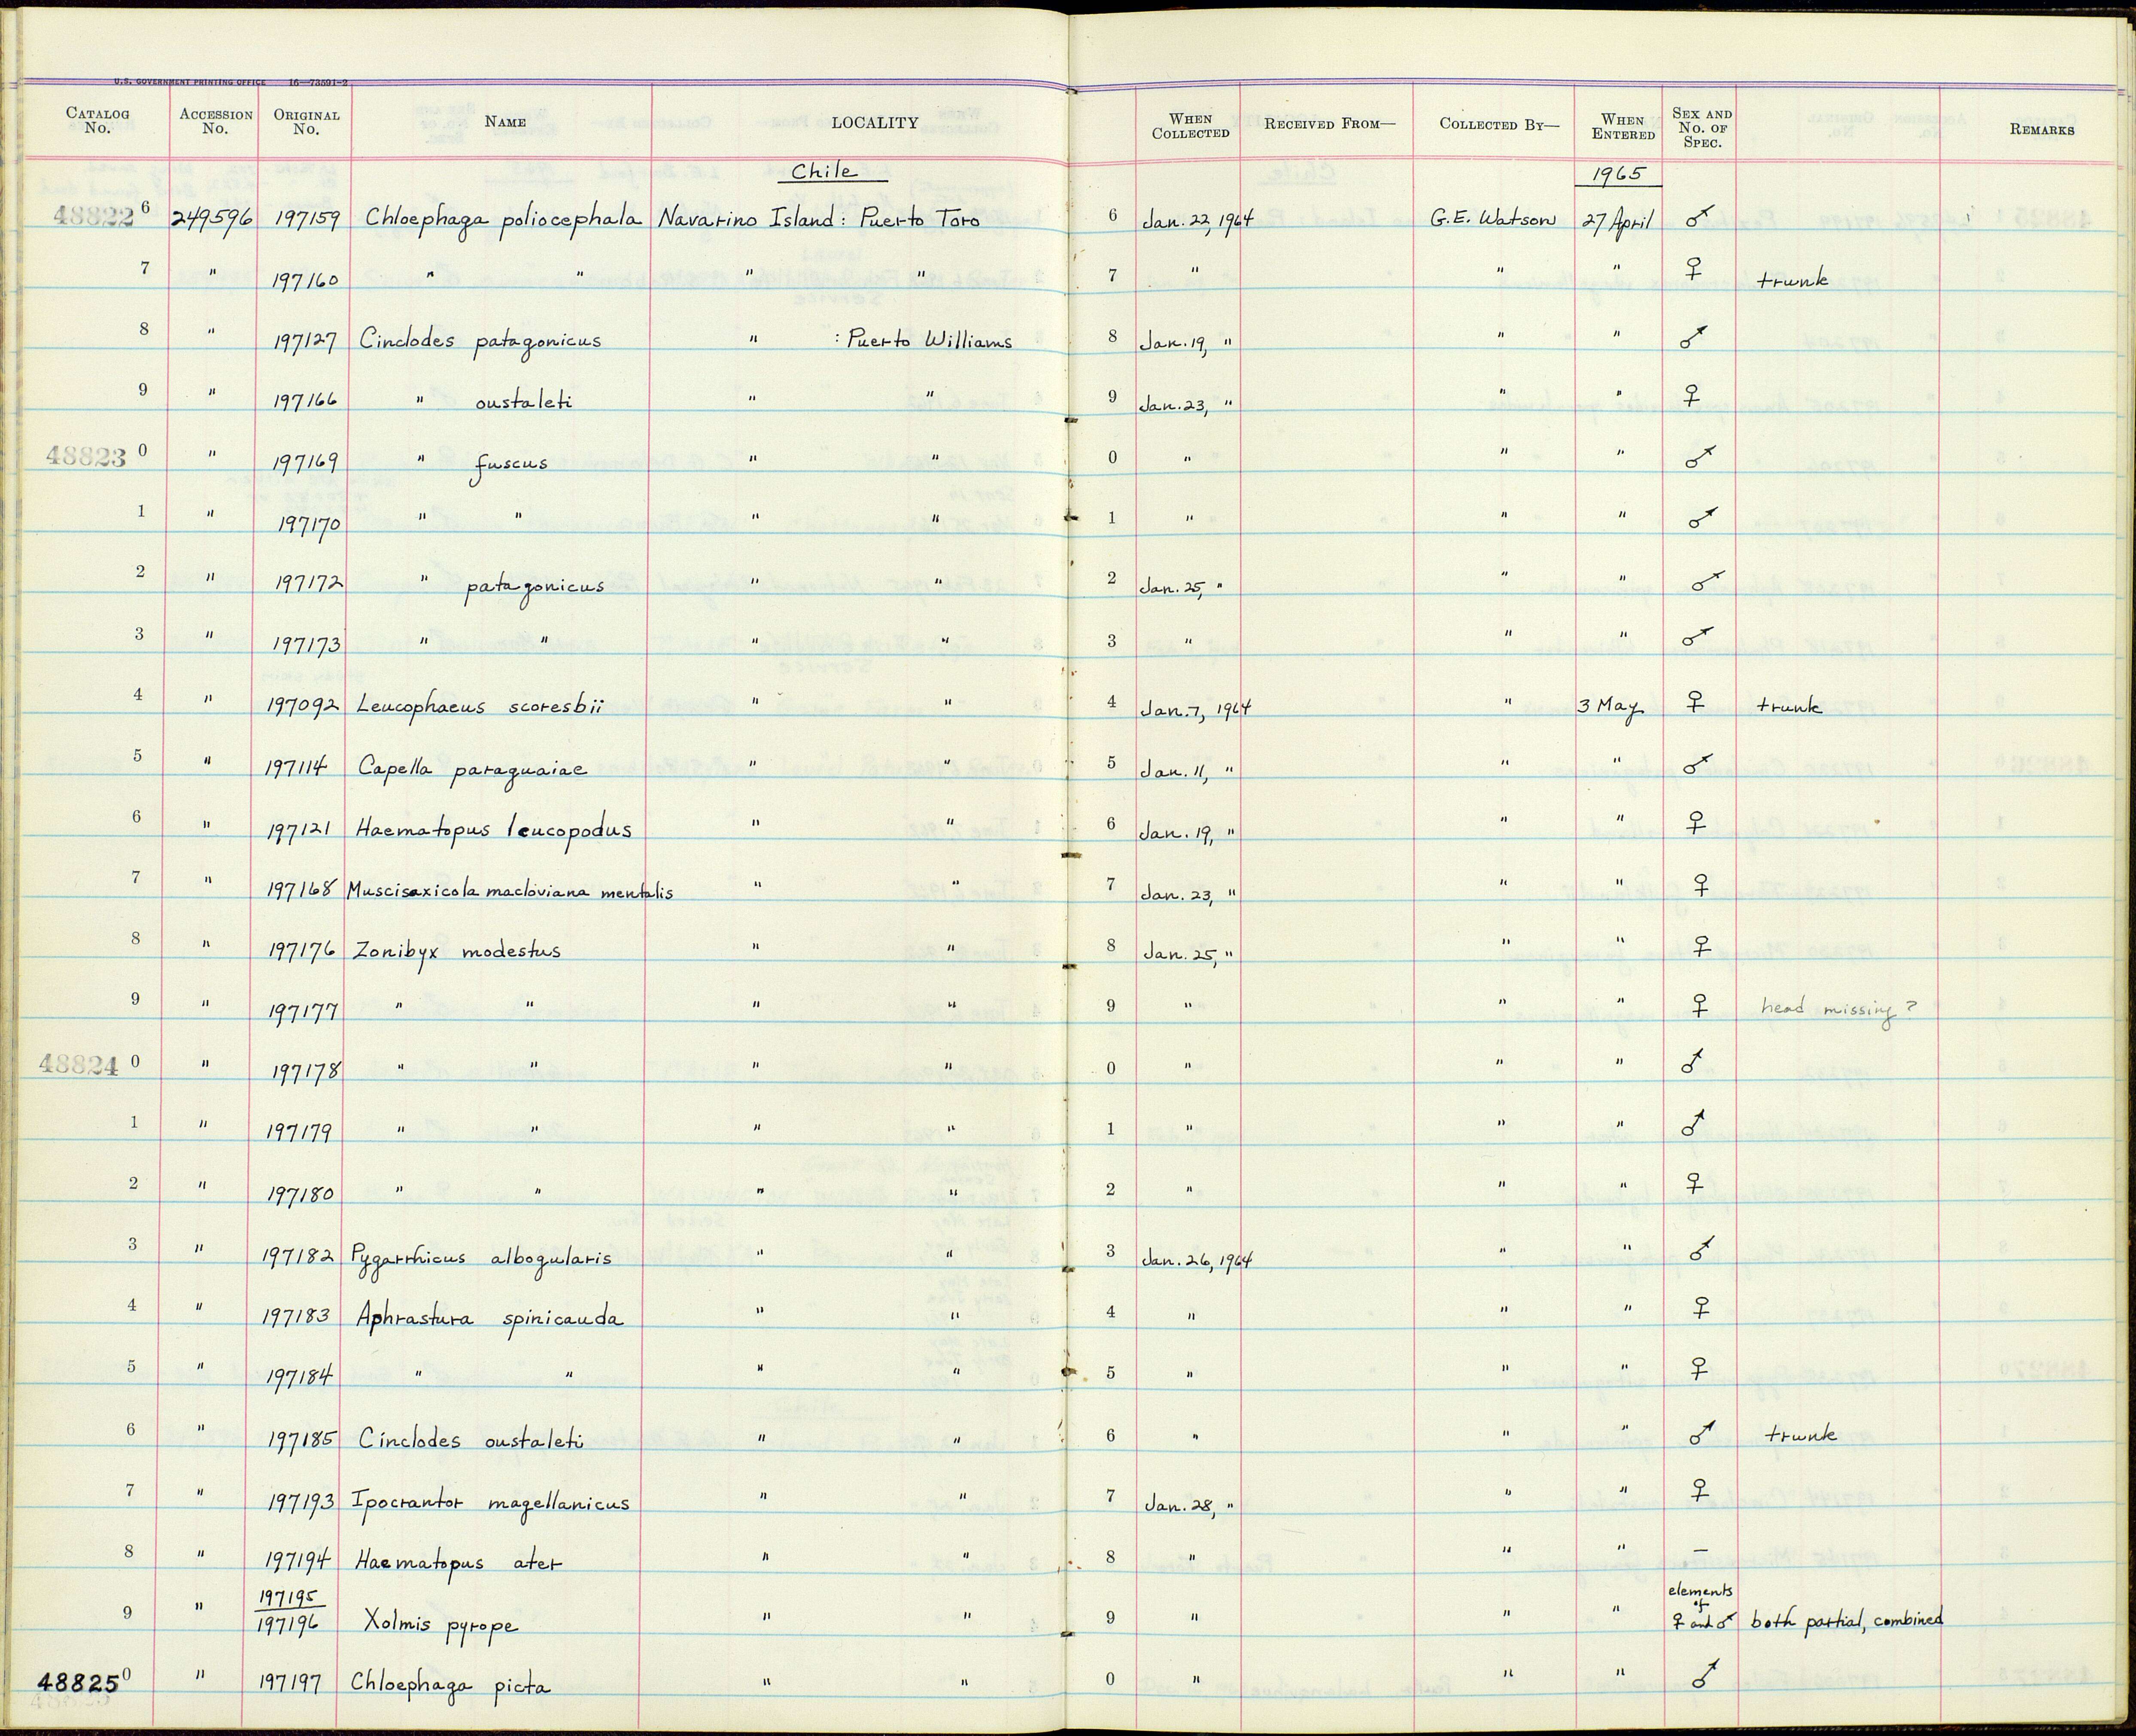 U.S. GOVERNMENT PRINTING OFFICE 16—73591-2
CATALOG No. ACCESSION No. ORIGINAL No. NAME LOCALITY WHEN COLLECTED RECEIVED FROM— COLLECTED BY— WHEN ENTERED SEX AND No. OF SPEC. REMARKS
Chile 1965
48822 6 249596 197159 Chloephaga poliocephala Navarino Island: Puerto Toro 6 Jan. 22, 1964 G.E. Watson 27 April ♂
7 " 197160 " " " " 7 " " " ♀ trunk
8 " 197127 Cinclodes patagonicus " : Puerto Williams 8 Jan. 19, " " " ♂
9 " 197166 " oustaleti " " 9 Jan. 23, " " " ♀
48823 0 " 197169 " fuscus " " 0 " " " ♂
1 " 197170 " " " " 1 " " " ♂
2 " 197172 " patagonicus " " 2 Jan. 25, " " " ♂
3 " 197173 " " " " 3 " " " ♂
4 " 197092 Leucophaeus scoresbii " " 4 Jan. 7, 1964 " 3 May ♀ trunk
5 " 197114 Capella paraguaiae " " 5 Jan. 11, " " " ♂
6 " 197121 Haematopus leucopodus " " 6 Jan. 19, " " " ♀
7 " 197168 Muscisaxicola macloviana mentalis " " 7 Jan. 23, " " " ♀
8 " 197176 Zonibyx modestus " " 8 Jan. 25, " " " ♀
9 " 197177 " " " " 9 " " " ♀ head missing ?
48824 0 " 197178 " " " " 0 " " " ♂
1 " 197179 " " " " 1 " " " ♂
2 " 197180 " " " " 2 " " " ♀
3 " 197182 Pygarrhicus albogularis " " 3 Jan. 26, 1964 " " ♂
4 " 197183 Aphrastura spinicauda " " 4 " " " ♀
5 " 197184 " " " " 5 " " " ♀
6 " 197185 Cinclodes oustaleti " " 6 " " " ♂ trunk
7 " 197193 Ipocrantor magellanicus " " 7 Jan. 28, " " " ♀
8 " 197194 Haematopus ater " " 8 " " " —
9 " 197195 197196 Xolmis pyrope " " 9 " " " elements of ♀ and ♂ both partial, combined
48825 0 " 197197 Chloephaga picta " " 0 " " " ♂